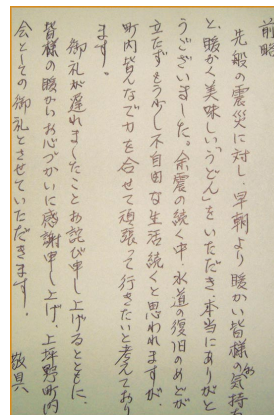 前略
先般の震災に対し、早朝より暖かい皆様のお気持
と、暖かく美味しい「うどん」をいただき、本当にありがと
うございました。余震の続く中、水道の復旧のめどが
立たずもう少し不自由な生活続くと思われますが、
町内皆んなで力を合せて頑張って行きたいと考えており
ます。
御礼が遅れましたことお詫び申し上げるとともに、
皆様の暖かいお心づかいに感謝申し上げ、上坪野町内
会としての御礼とさせていただきます。
敬具